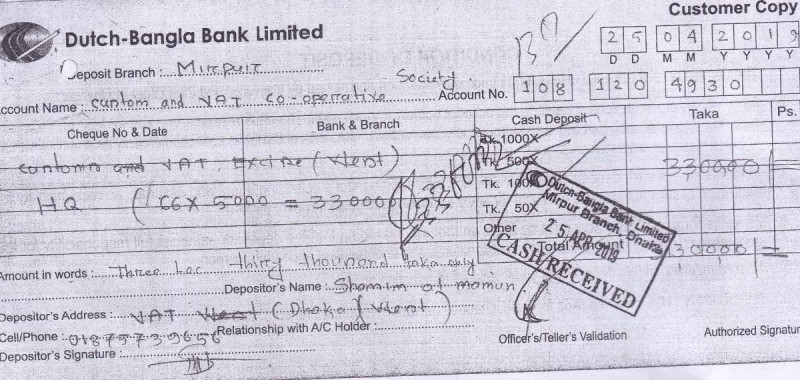 Customer Copy
Dutch-Bangla Bank Limited
25 04 2019
D D M M Y Y Y Y
Deposit Branch : Mirpur
Society
Account Name : Custom and VAT co-operative Account No. 108 120 4930
Cheque No & Date Bank & Branch Cash Deposit Taka Ps.
Tk. 1000X
Customs and VAT, Excise (West) Tk. 500X 330000/=
HQ (66X 5000 = 330000 Tk. 100X
Tk. 50X
Other
Total Amount 330000/=
Dutch-Bangla Bank Limited
Mirpur Branch, Dhaka
25 APR 2019
CASH RECEIVED
Amount in words : Three Lac thirty thousand taka only
Depositor's Name : Shamim al mamun
Depositor's Address : VAT West (Dhaka West)
Cell/Phone : 01875739656 Relationship with A/C Holder :
Depositor's Signature :
Officer's/Teller's Validation
Authorized Signatur